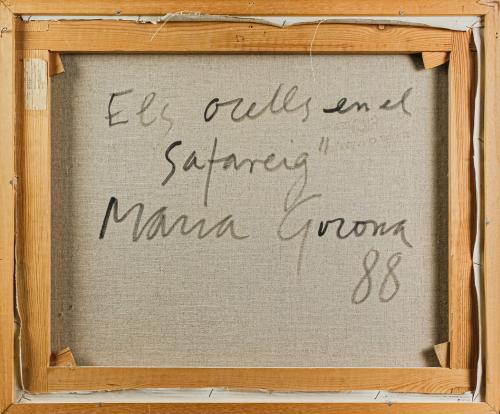 Els ocells en el
Safareig"
Maria Gorona
88